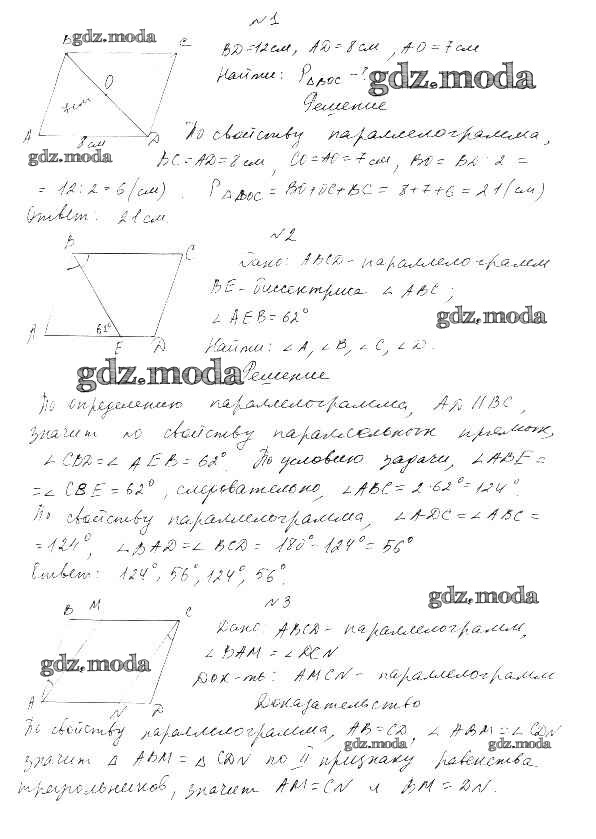 №1
BD=12см, AD=8см, AO=7см
Найти: P△BOC -?
Решение
По свойству параллелограмма,
BC=AD=8см, CO=AO=7см, BO=BD:2=
=12:2=6(см). P△BOC=BO+OC+BC=8+7+6=21(см)
Ответ: 21см.
B
C
O
7см
A
8см
D
№2
Дано: ABCD-параллелограмм
BE-биссектриса ∠ABC;
∠AEB=62°
Найти: ∠A, ∠B, ∠C, ∠D.
B
C
A
E
D
Решение
По определению параллелограмма, AD||BC,
значит по свойству параллельных прямых,
∠CBD=∠AEB=62°. По условию задачи, ∠ABE=
=∠CBE=62°, следовательно, ∠ABC=2·62°=124°.
По свойству параллелограмма, ∠ADC=∠ABC=
=124°, ∠BAD=∠BCD=180°-124°=56°
Ответ: 124°, 56°, 124°, 56°.
№3
Дано: ABCD-параллелограмм,
∠BAM=∠DCN
Док-ть: AMCN-параллелограмм
Доказательство
B
M
C
A
N
D
По свойству параллелограмма, AB=CD, ∠ABM=∠CDN
значит △ABM=△CDN по II признаку равенства
треугольников, значит AM=CN и BM=DN.
gdz.moda
gdz.moda
gdz.moda
gdz.moda
gdz.moda
gdz.moda
gdz.moda
gdz.moda
gdz.moda